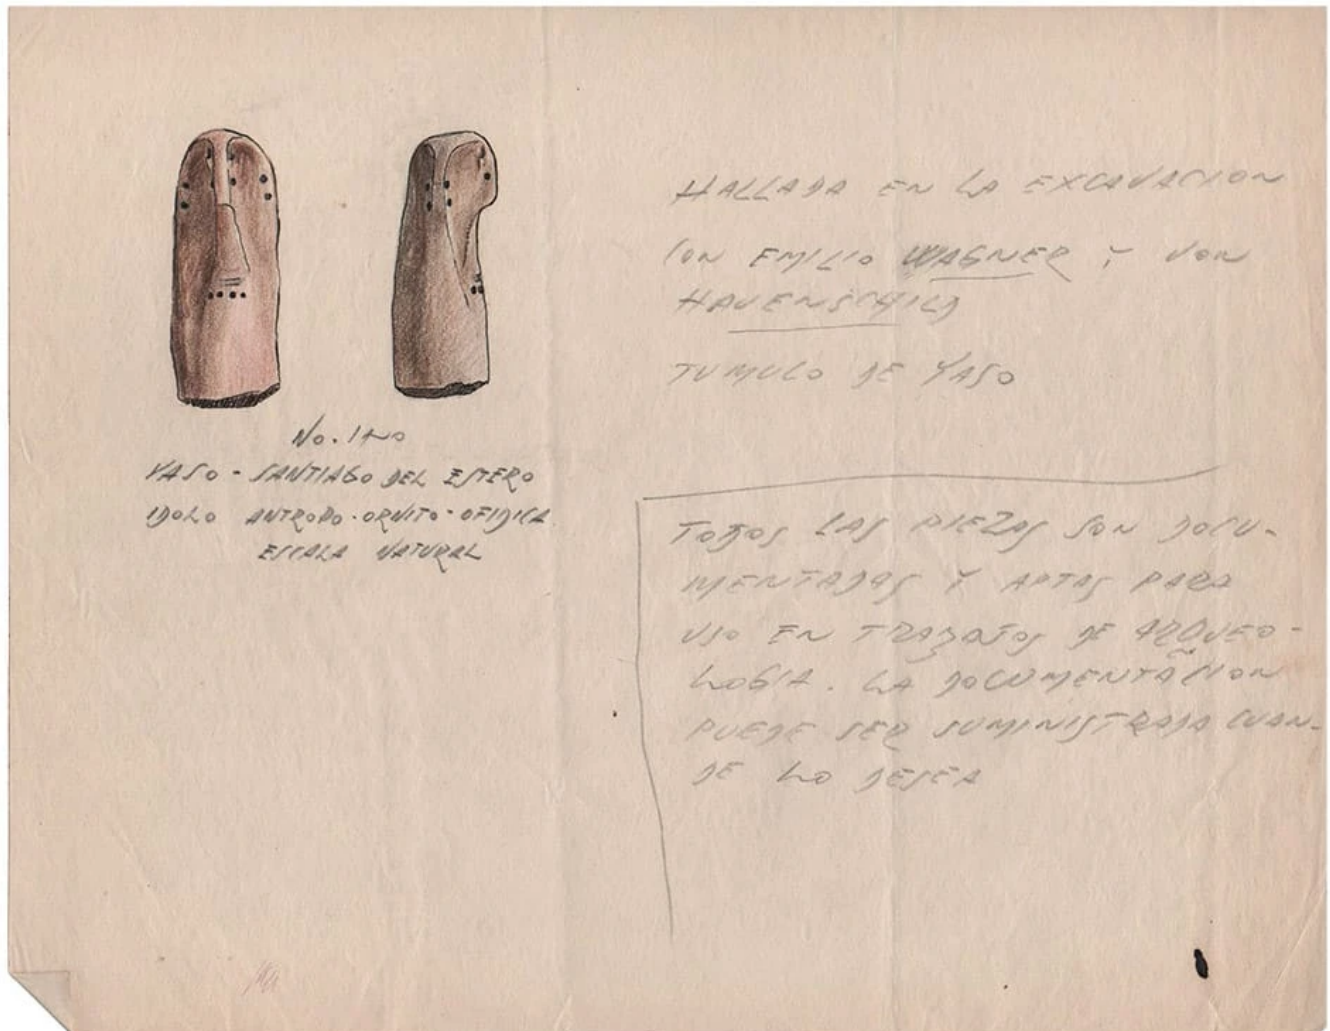 No.
YASO - SANTIAGO DEL ESTERO
IDOLO ANTROPO-ORNITO-OFIDICA
ESCALA NATURAL
HALLADA EN LA EXCAVACION
CON EMILIO WAGNER Y VON
HAUENSCHILD
TUMULO DE YASO
TODOS LAS PIEZAS SON DOCU-
MENTADAS Y APTAS PARA
USO EN TRABAJOS DE ARQUEO-
LOGIA. LA DOCUMENTACION
PUEDE SER SUMINISTRADA CUAN-
DE LO DESEA